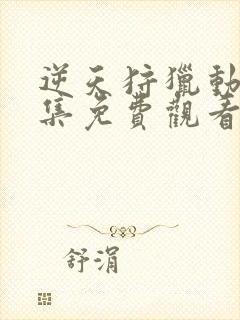 逆天狩獵動
集免費觀看
舒涓